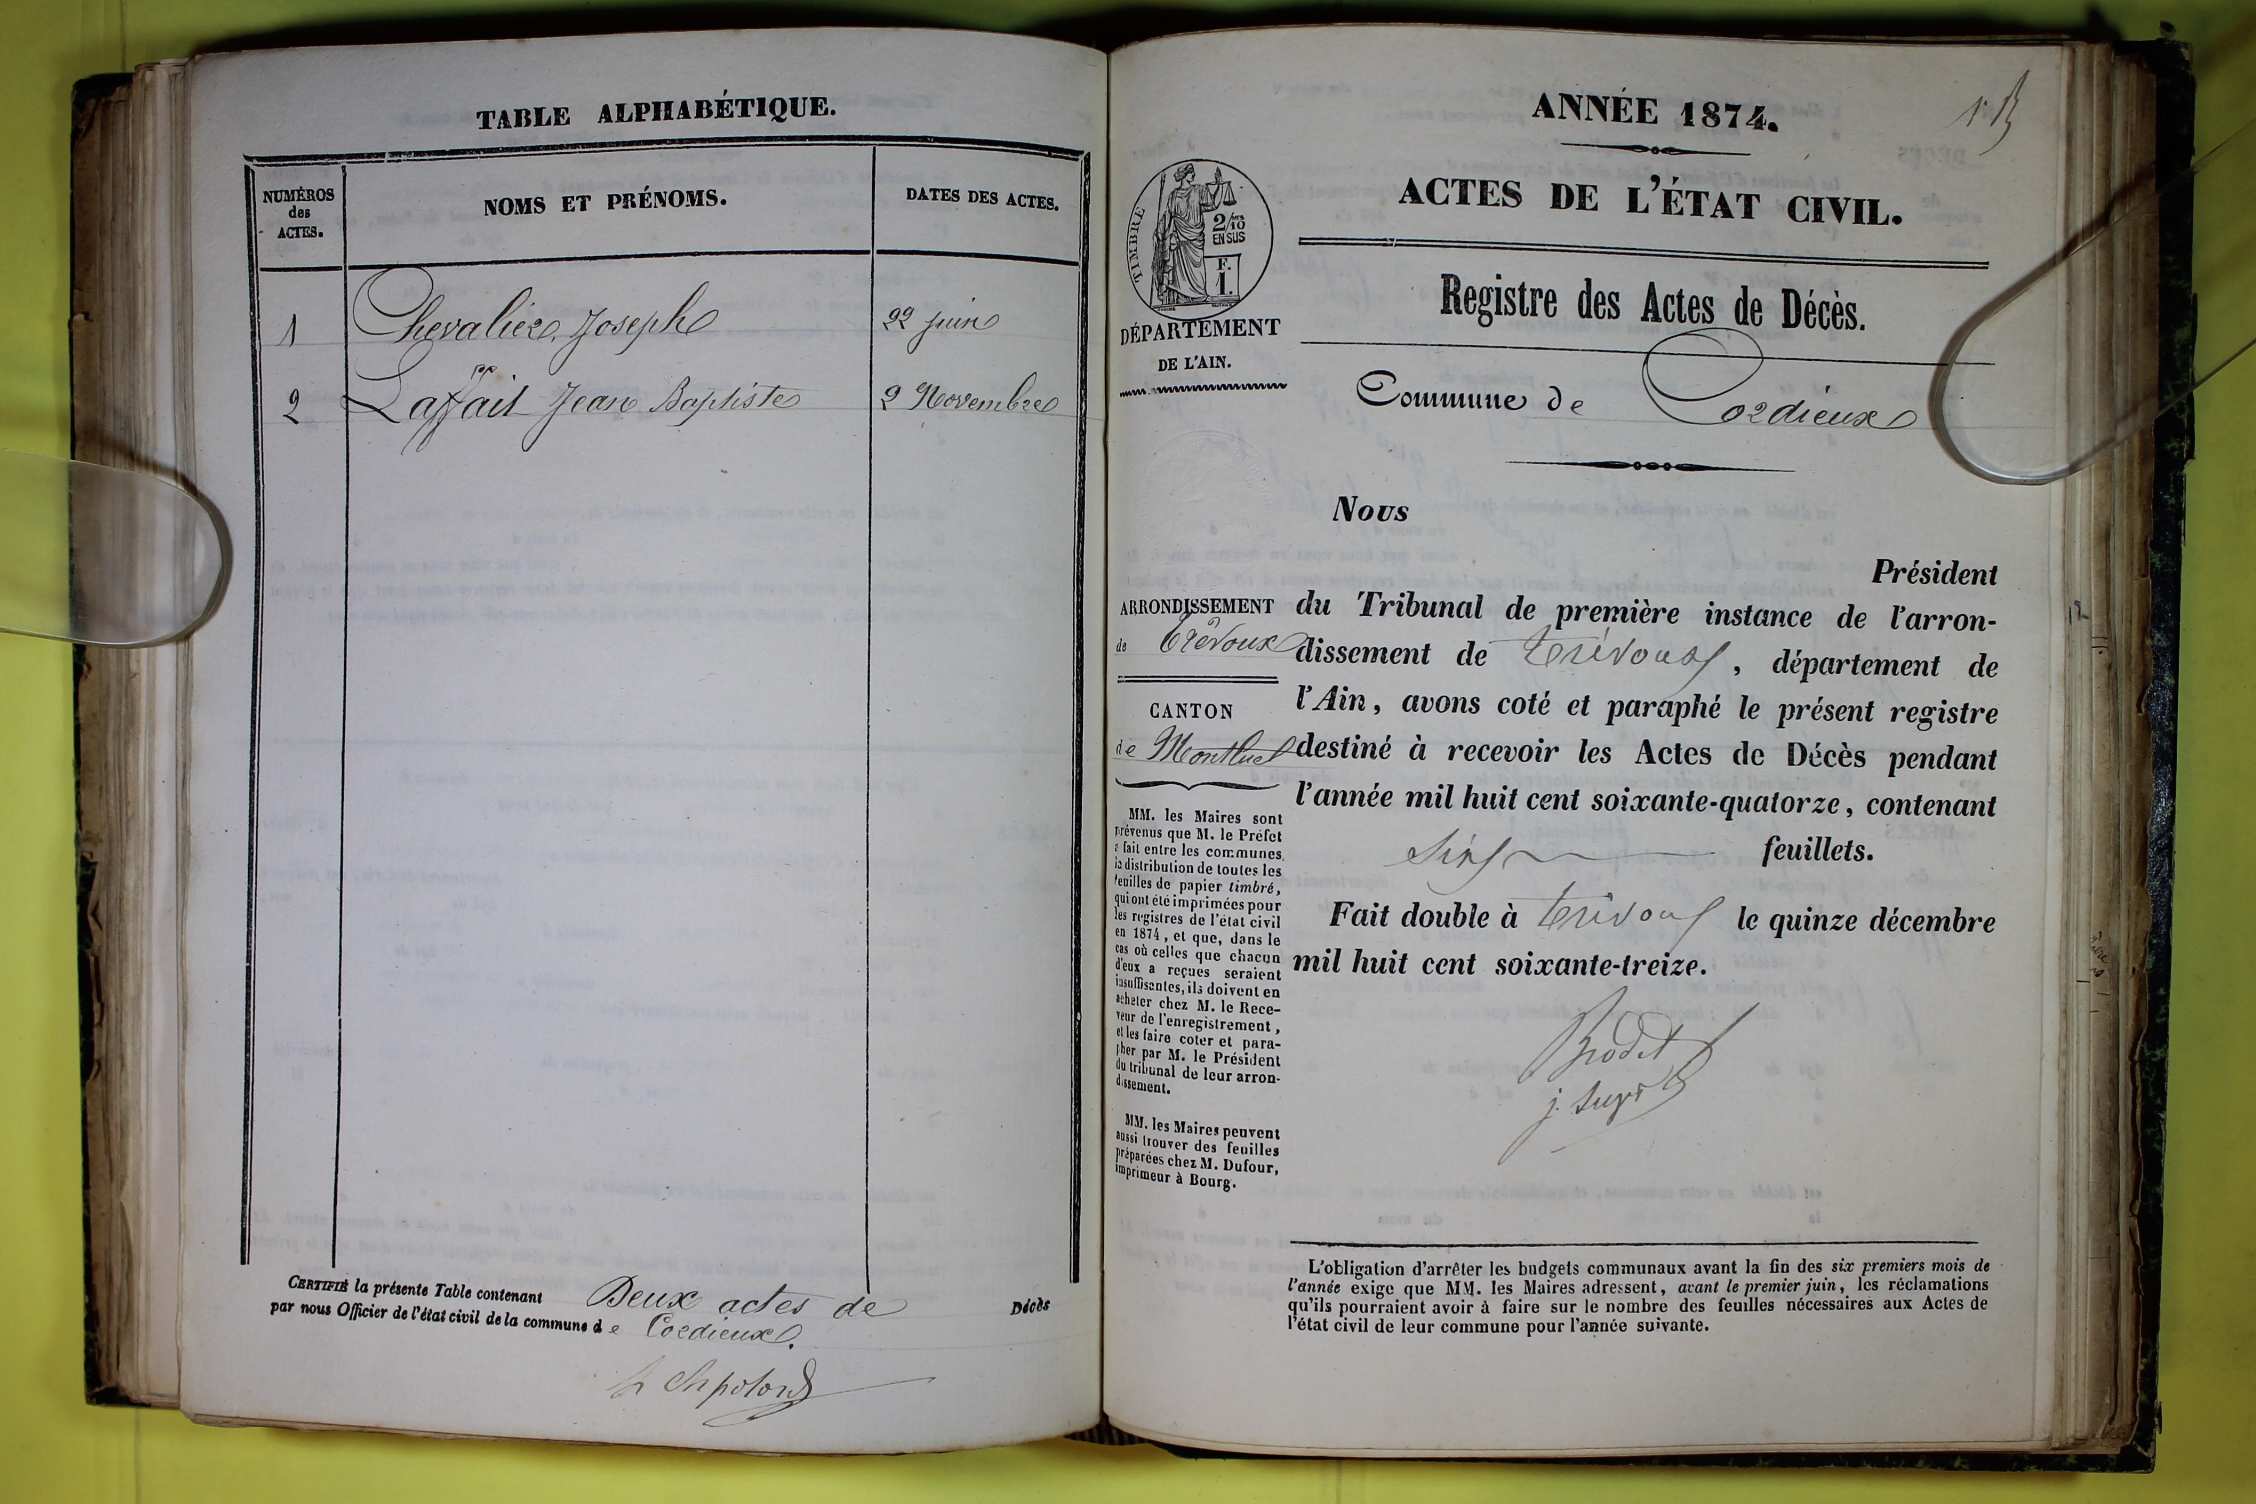 TABLE ALPHABÉTIQUE.
NUMÉROS
des
ACTES.
NOMS ET PRÉNOMS.
DATES DES ACTES.
1 Chevalier Joseph 22 juin
2 Laffait Jean Baptiste 2 Novembre
CERTIFIÉ la présente Table contenant Deux actes de Décès
par nous Officier de l'état civil de la commune de Cordieux.
ANNÉE 1874.
ACTES DE L'ÉTAT CIVIL.
Registre des Actes de Décès.
Commune de Cordieux
TIMBRE
2/10
EN SUS
F.
1.
DÉPARTEMENT
DE L'AIN.
ARRONDISSEMENT
de Trévoux
CANTON
de Montluel
MM. les Maires sont
prévenus que M. le Préfet
a fait entre les communes
la distribution de toutes les
feuilles de papier timbré,
qui ont été imprimées pour
les registres de l'état civil
en 1874, et que, dans le
cas où celles que chacun
d'eux a reçues seraient
insuffisantes, ils doivent en
acheter chez M. le Rece-
veur de l'enregistrement,
et les faire coter et para-
pher par M. le Président
du tribunal de leur arron-
dissement.
MM. les Maires peuvent
aussi trouver des feuilles
préparées chez M. Dufour,
imprimeur à Bourg.
Nous
Président
du Tribunal de première instance de l'arron-
dissement de Trévoux, département de
l'Ain, avons coté et paraphé le présent registre
destiné à recevoir les Actes de Décès pendant
l'année mil huit cent soixante-quatorze, contenant
feuillets.
Fait double à Trévoux le quinze décembre
mil huit cent soixante-treize.
Brodet
j. supt
L'obligation d'arrêter les budgets communaux avant la fin des six premiers mois de
l'année exige que MM. les Maires adressent, avant le premier juin, les réclamations
qu'ils pourraient avoir à faire sur le nombre des feuilles nécessaires aux Actes de
l'état civil de leur commune pour l'année suivante.